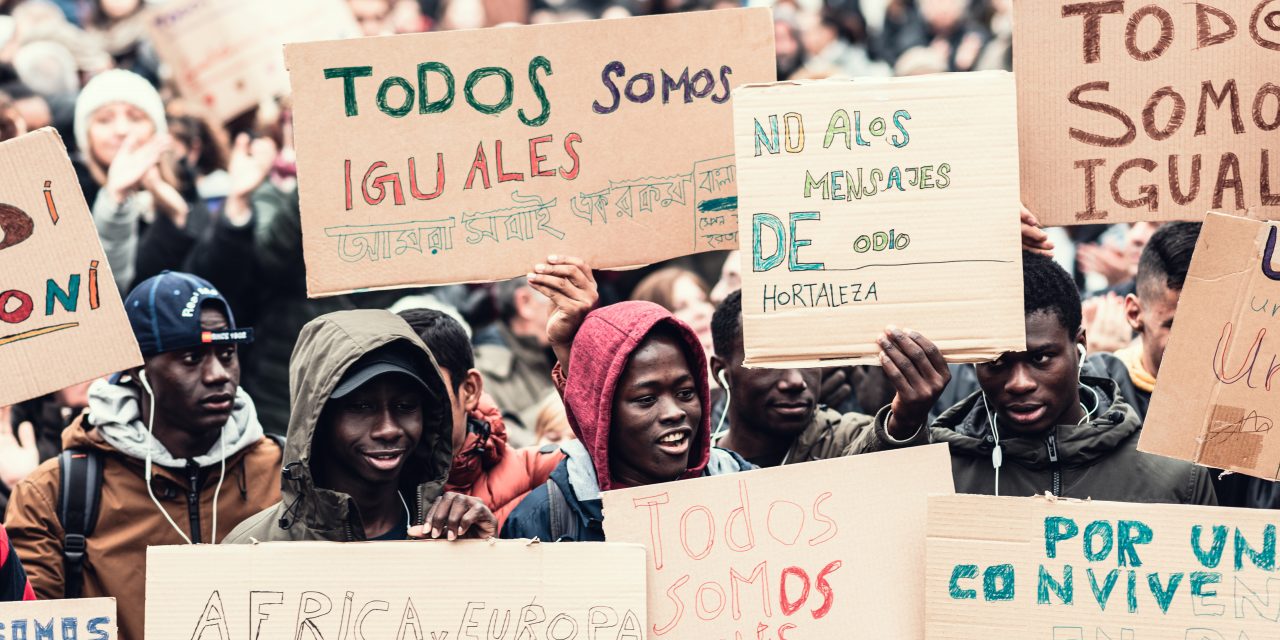 TODOS SOMOS
IGUALES
আমরা সবাই একরকম
NO A LOS
MENSAJES
DE ODIO
HORTALEZA
TODO
SOMO
IGUAL
ONI
Real
SINCE 1902
Todos
SOMOS
AFRICA Y EUROPA
POR UN
CONVIVEN
SOMOS